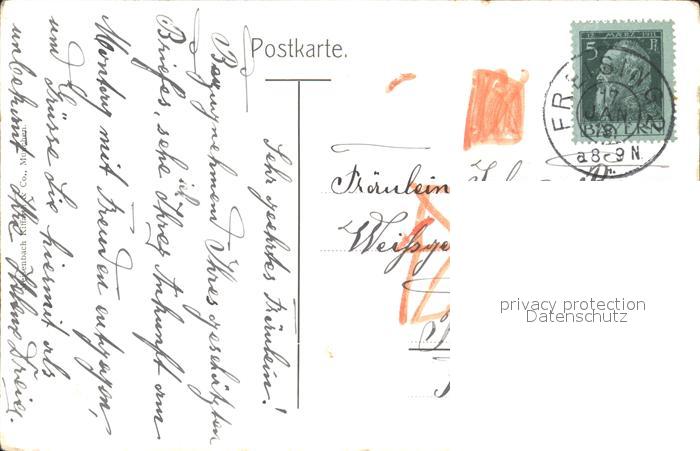 Postkarte.
12. MÄRZ 1911
5 Pf.
BAYERN
FREISING
JAN
8-9 N
Fräulein
Weißge
Sehr geehrtes Fräulein!
Bezugnehmend Ihres geschätzten
Briefes, sehe ich Ihrer Ankunft am
Montag mit Freuden entgegen,
und Grüsse Sie hiermit als
unbekannt Ihre Helene
& Co., München.
privacy protection
Datenschutz